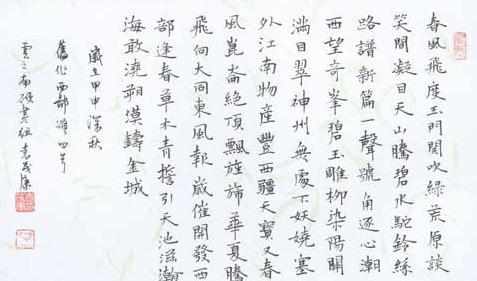 春風飛度玉門關吹綠荒原談
笑間凝目天山騰碧水駝鈴絲
路譜新篇一聲號角逐心潮
西望奇峯碧玉雕柳染陽關
滿目翠神州無處不妖嬈塞
外江南物產豐西疆天寶又春
風崑崙絕頂飄旌旆華夏騰
飛向大同東風報歲催開發西
部逢春草木青誓引天池滋瀚
海敢澆朔漠鑄金城
歲在甲申深秋
舊作西部游四首
雲之南